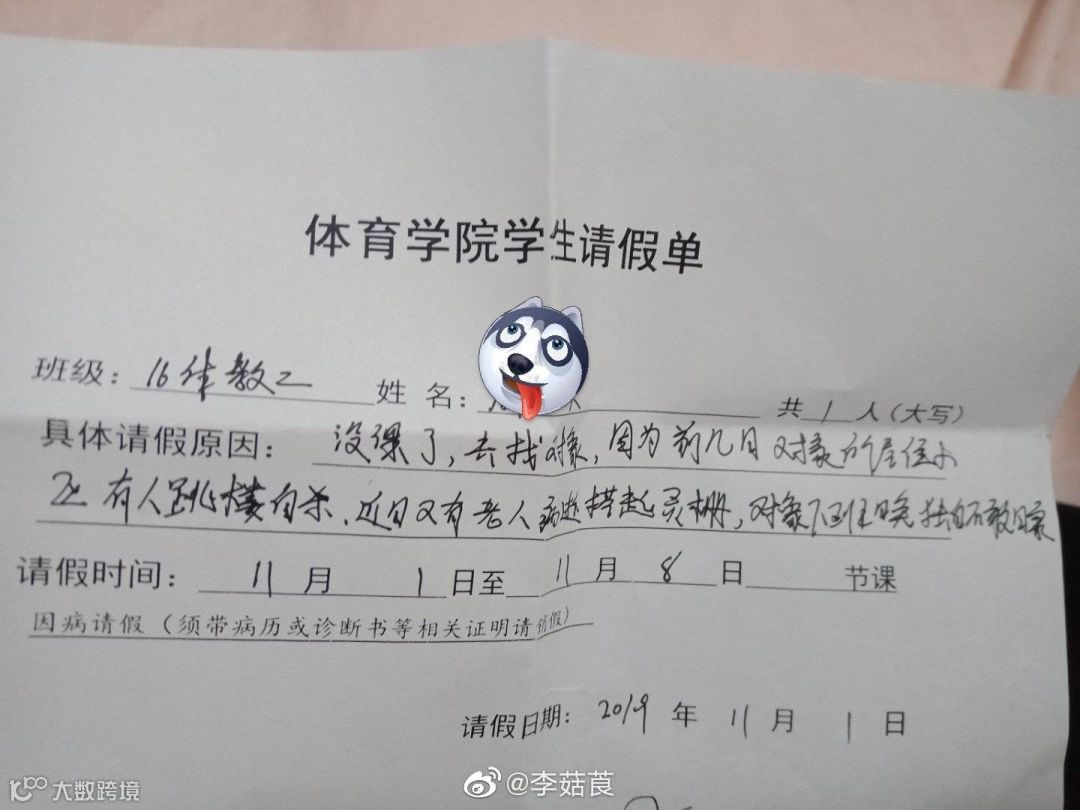 体育学院学生请假单
班级：16体教二 姓 名： 共 1 人（大写）
具体请假原因：没课了，去找对象，因为前几日对象的居住小
区有人跳楼自杀，近日又有老人病逝搭起灵棚，对象 晚独自不敢
请假时间： 11 月 1 日至 11 月 8 日 节课
因病请假（须带病历或诊断书等相关证明请销假）
请假日期： 2019 年 11 月 1 日
@李菇莨
大数跨境